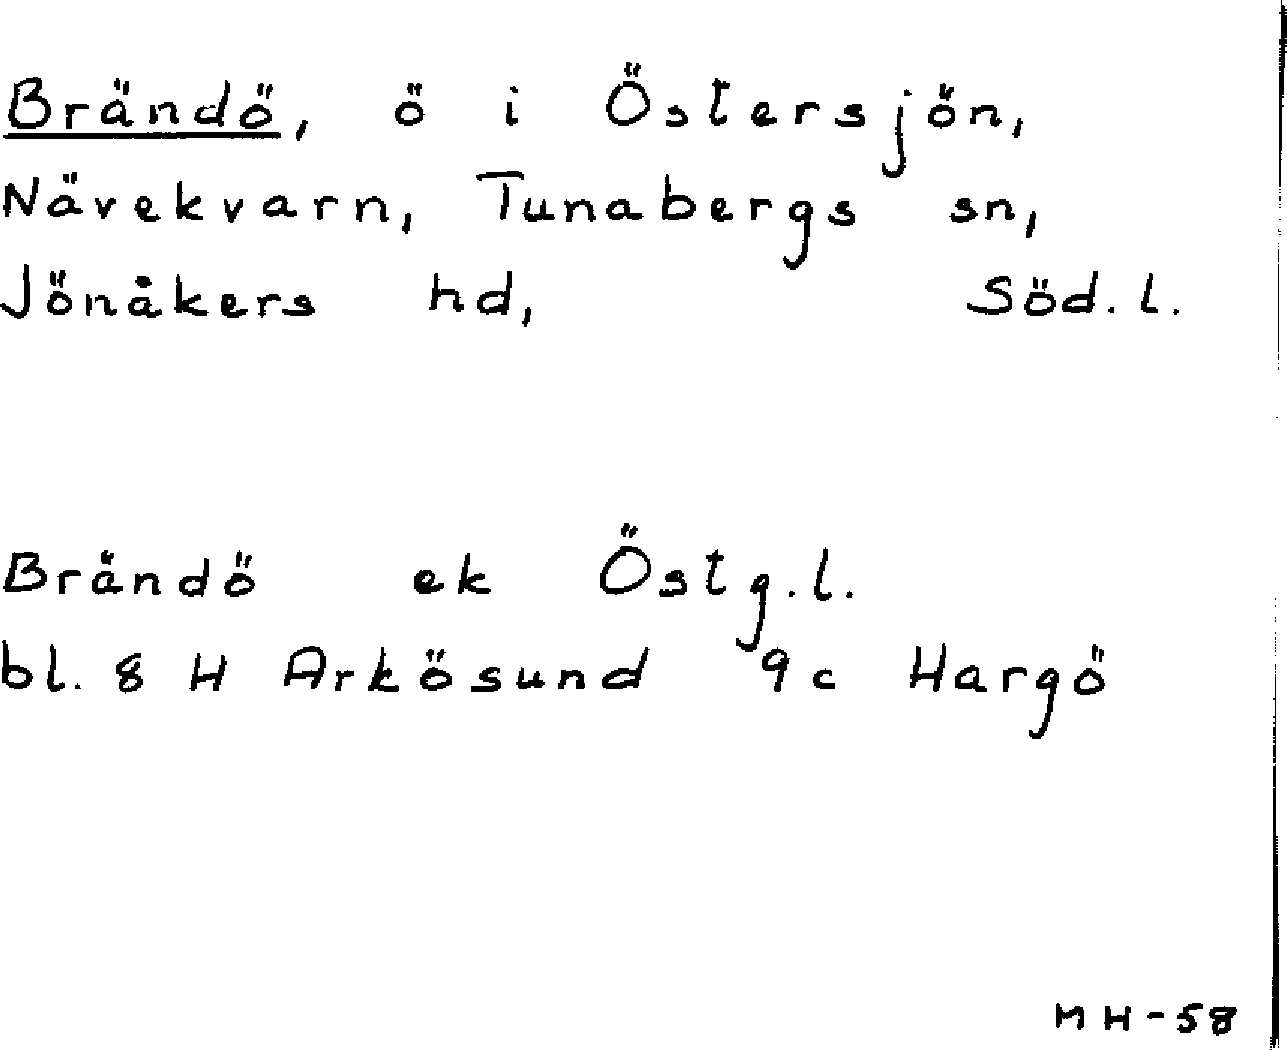 Brändö, ö i Östersjön,
Nävekvarn, Tunabergs sn,
Jönåkers hd, Söd. l.
Brändö ek Östg. l.
bl. 8 H Arkösund 9c Hargö
MH-58